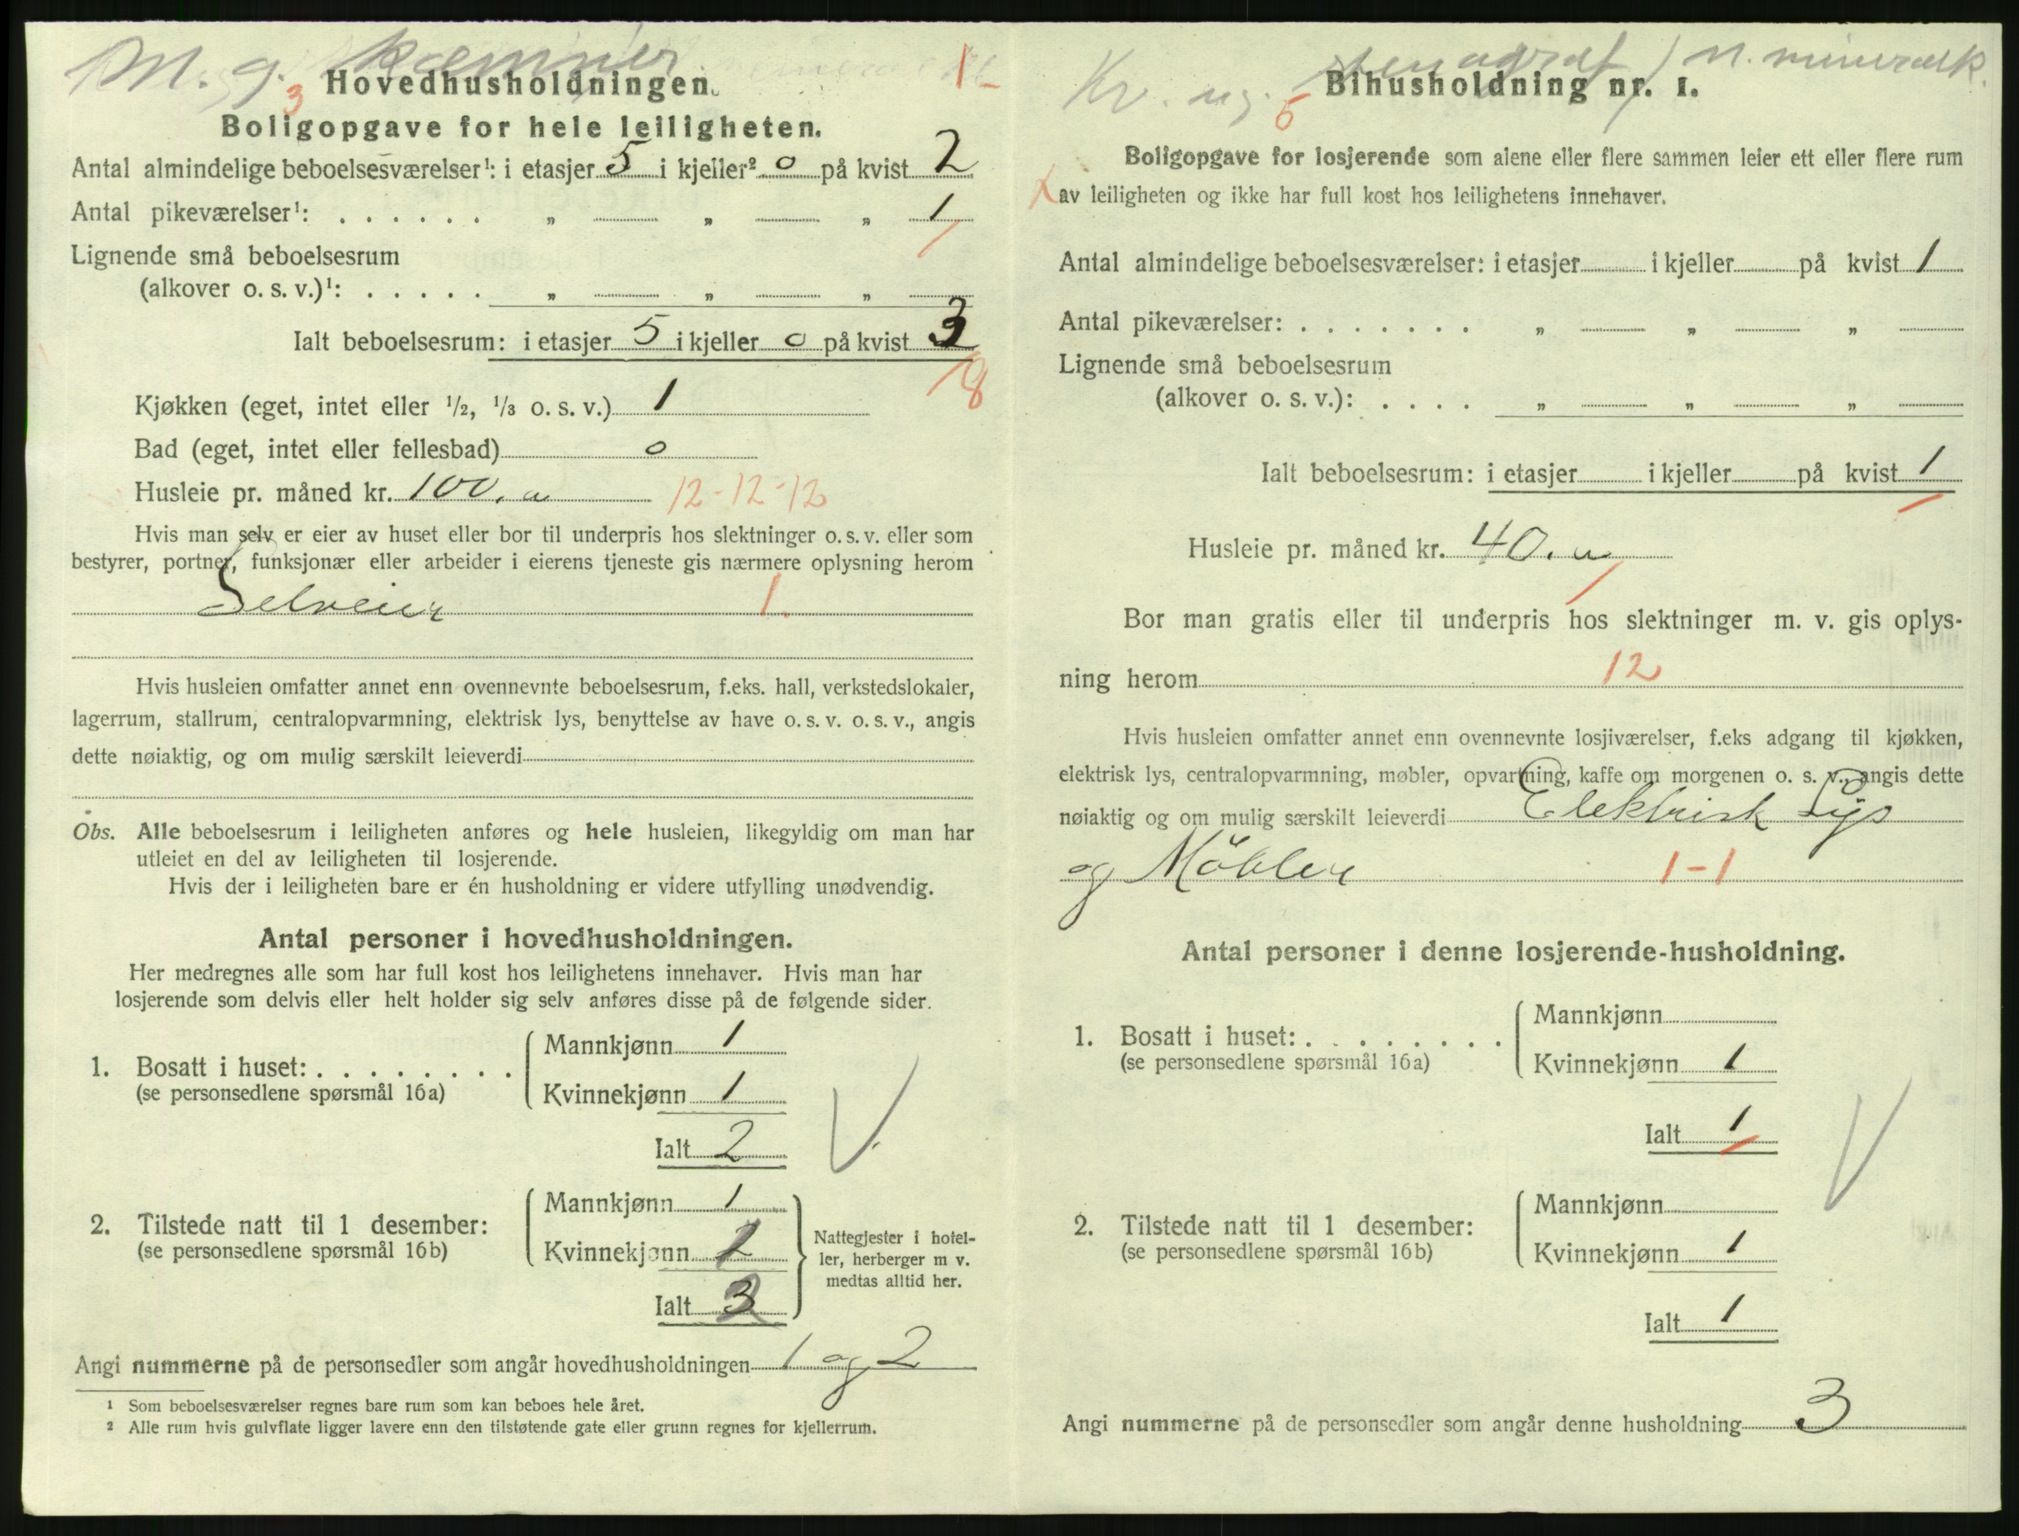 M. g. kæmner 1-
3 Hovedhusholdningen.
Boligopgave for hele leiligheten.
Antal almindelige beboelsesværelser¹: i etasjer 5 i kjeller² 0 på kvist 2
Antal pikeværelser¹: . . . . . . „ „ „ 1
Lignende små beboelsesrum
(alkover o. s. v.)¹: . . . . . „ „ „
Ialt beboelsesrum: i etasjer 5 i kjeller 0 på kvist 3
8
Kjøkken (eget, intet eller ½, ⅓ o. s. v.) 1
Bad (eget, intet eller fellesbad) 0
Husleie pr. måned kr. 100. 12-12-12
Hvis man selv er eier av huset eller bor til underpris hos slektninger o. s. v. eller som
bestyrer, portner, funksjonær eller arbeider i eierens tjeneste gis nærmere oplysning herom
Selveier 1.
Hvis husleien omfatter annet enn ovennevnte beboelsesrum, f.eks. hall, verkstedslokaler,
lagerrum, stallrum, centralopvarmning, elektrisk lys, benyttelse av have o. s. v. o. s. v., angis
dette nøiaktig, og om mulig særskilt leieverdi
Obs. Alle beboelsesrum i leiligheten anføres og hele husleien, likegyldig om man har
utleiet en del av leiligheten til losjerende.
Hvis der i leiligheten bare er én husholdning er videre utfylling unødvendig.
Antal personer i hovedhusholdningen.
Her medregnes alle som har full kost hos leilighetens innehaver. Hvis man har
losjerende som delvis eller helt holder sig selv anføres disse på de følgende sider.
1. Bosatt i huset: . . . . . . . .
(se personsedlene spørsmål 16a)
Mannkjønn 1
Kvinnekjønn 1
Ialt 2
2. Tilstede natt til 1 desember:
(se personsedlene spørsmål 16b)
Mannkjønn 1
Kvinnekjønn
Ialt
Nattegjester i hotel-
ler, herberger m v.
medtas alltid her.
Angi nummerne på de personsedler som angår hovedhusholdningen 1 og 2
¹ Som beboelsesværelser regnes bare rum som kan beboes hele året.
² Alle rum hvis gulvflate ligger lavere enn den tilstøtende gate eller grunn regnes for kjellerrum.
Kv. ug. stenograf / N. mineralk.
5 Bihusholdning nr. 1.
Boligopgave for losjerende som alene eller flere sammen leier ett eller flere rum
av leiligheten og ikke har full kost hos leilighetens innehaver.
Antal almindelige beboelsesværelser: i etasjer i kjeller på kvist 1
Antal pikeværelser: . . . . . . . „ „ „
Lignende små beboelsesrum
(alkover o. s. v.): . . . . „ „ „
Ialt beboelsesrum: i etasjer i kjeller på kvist 1
Husleie pr. måned kr. 40.
Bor man gratis eller til underpris hos slektninger m. v. gis oplys-
ning herom 12
Hvis husleien omfatter annet enn ovennevnte losjiværelser, f.eks adgang til kjøkken,
elektrisk lys, centralopvarmning, møbler, opvartning, kaffe om morgenen o. s. v., angis dette
nøiaktig og om mulig særskilt leieverdi Elektrisk Lys
og Möbler 1-1
Antal personer i denne losjerende-husholdning.
1. Bosatt i huset: . . . . . . . .
(se personsedlene spørsmål 16a)
Mannkjønn
Kvinnekjønn 1
Ialt 1
2. Tilstede natt til 1 desember:
(se personsedlene spørsmål 16b)
Mannkjønn
Kvinnekjønn 1
Ialt 1
Angi nummerne på de personsedler som angår denne husholdning 3